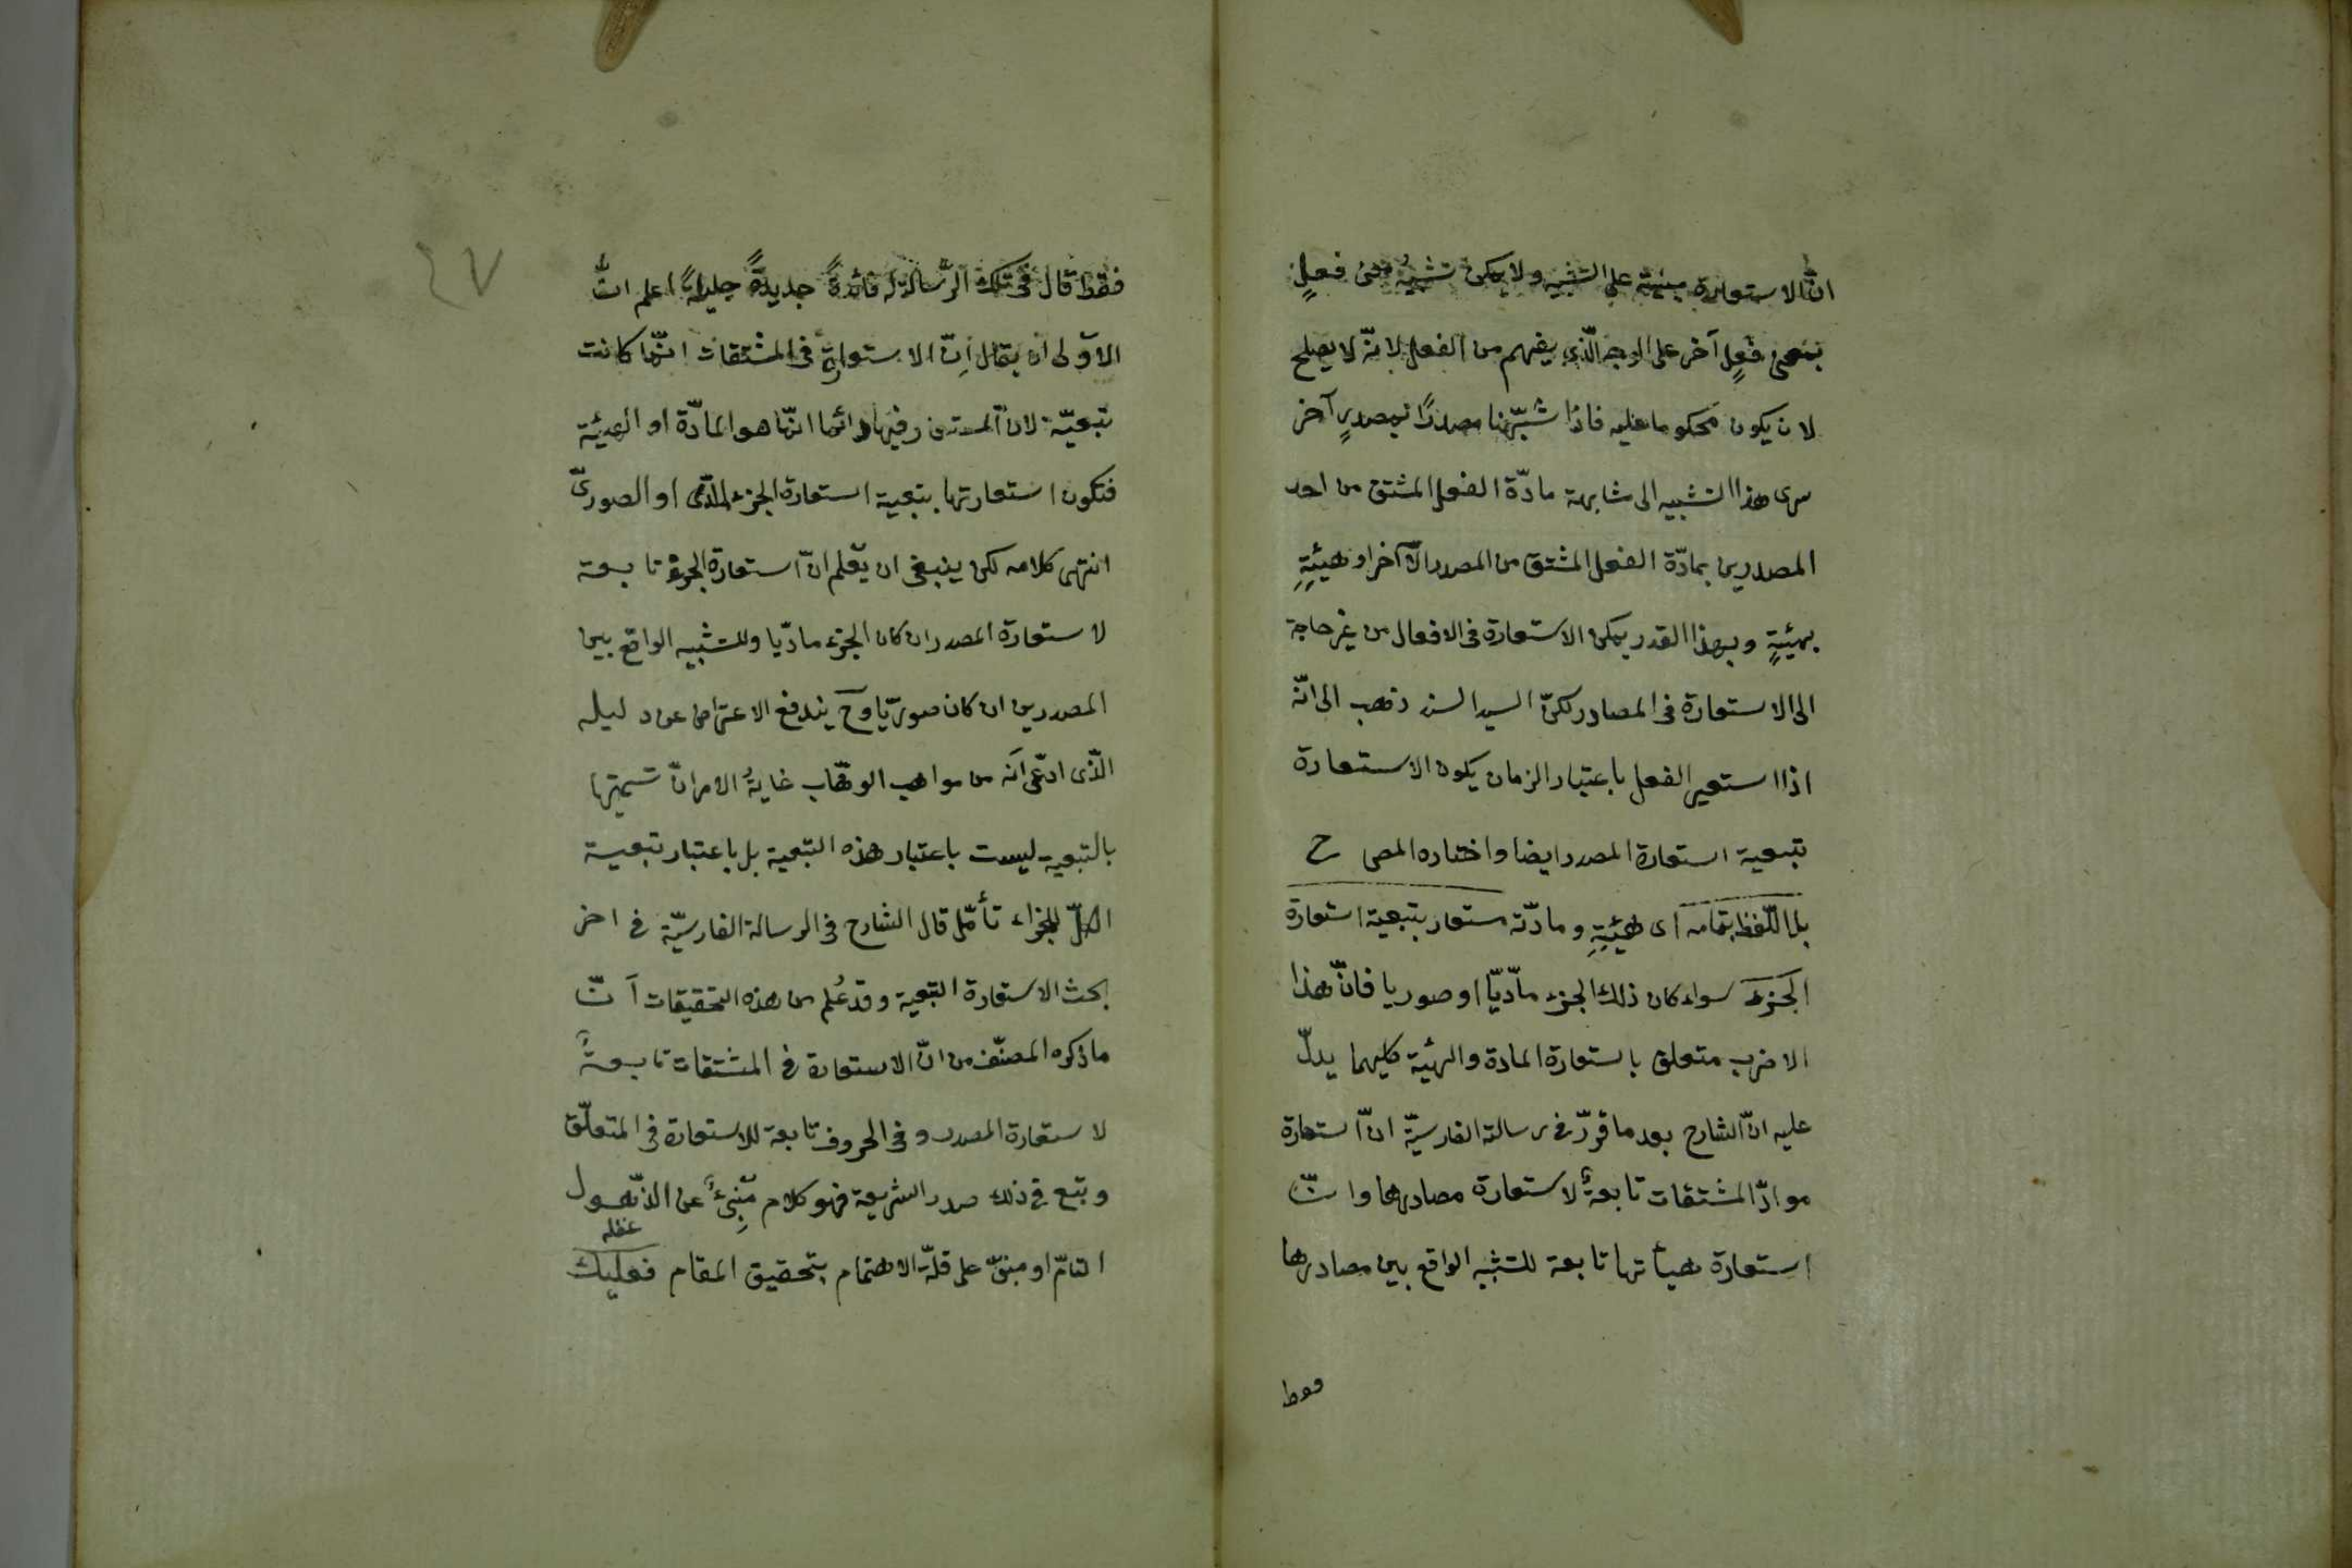 انّ الاستعارة مبنية على التشبيه ولا يمكن تشبيهُ معنى فعلٍ
بمعنى فعلٍ آخر على الوجه الّذى يفهم من الفعل لانّه لا يصلح
لان يكون محكوما عليه فاذا شبّهنا مصدرًا بمصدرٍ آخر
سرى هذا التشبيه الى مشابهة مادّة الفعل المشتق من احد
المصدرين بمادّة الفعل المشتق من المصدر الآخر او هيئةٍ
بهيئةٍ وبهذا القدر يمكن الاستعارة فى الافعال من غير حاجة
الى الاستعارة فى المصادر لكنّ السيد السند ذهب الى انّه
اذا استعير الفعل باعتبار الزمان يكون الاستعارة
تبعية استعارة المصدر ايضا واختاره المص ح
بل اللّفظ بتمامه اى هيئتِهِ ومادّته مستعار بتبعية استعارة
الجزء سواء كان ذلك الجزء مادّيّا او صوريا فانّ هذا
الاضرب متعلق باستعارة المادة والهيئة كليهما يدلّ
عليه انّ الشارح بعد ما قرّر فى رسالته الفارسيّة انّ استعارة
موادّ المشتقات تابعةٌ لاستعارة مصادرها وانّ
استعارة هيأتها تابعة للتشبيه الواقع بين مصادرها
فقط
٤٧
فقط قال فى تلك الرّسالة فائدةً جديدةً جليلةً اعلم انّ
الاَولى ان يقال اِنّ الاستعارة فى المشتقات انّما كانت
تبعيّة لانّ المستعار فيها دائما انّما هو المادّة او الهيئة
فتكون استعارتها بتبعية استعارة الجزء المادّى او الصورىّ
انتهى كلامه لكن ينبغى ان يعلم انّ استعارة الجزء تابعة
لاستعارة المصدر ان كان الجزء مادّيا وللتشبيه الواقع بين
المصدرين ان كان صوريّا وح يندفع الاعتراض عن دليله
الّذى ادّعى اَنه من مواهب الوهّاب غايةُ الامر انّ تسميتها
بالتبعية ليست باعتبار هذه التبعية بل باعتبار تبعية
الكلّ للجزء تأمّل قال الشارح فى الرسالة الفارسيّة فى اخر
بحث الاستعارة التبعية وقد عُلم من هذه التحقيقات اَنّ
ماذكره المصنّف من انّ الاستعارة فى المشتقات تابعةٌ
لاستعارة المصدر وفى الحروف تابعة للاستعارة فى المتعلّق
وتبع فى ذلك صدر الشريعة فهو كلام مُنبِئٌ عن الذّهول
غفله
التامّ او مبنىّ على قلّة الاهتمام بتحقيق المقام فعليك